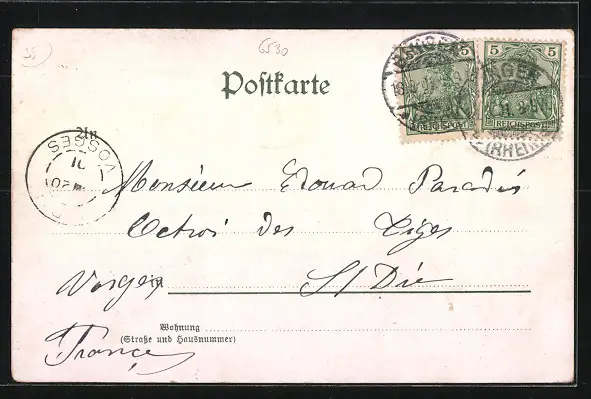 6530
Postkarte
5 5
REICHSPOST REICHSPOST
(RHEIN)
VOSGES
An
Monsieur Edouard Paradis
Octroi des Tiges
Vosges St Dié
in
Wohnung
(Straße und Hausnummer)
France